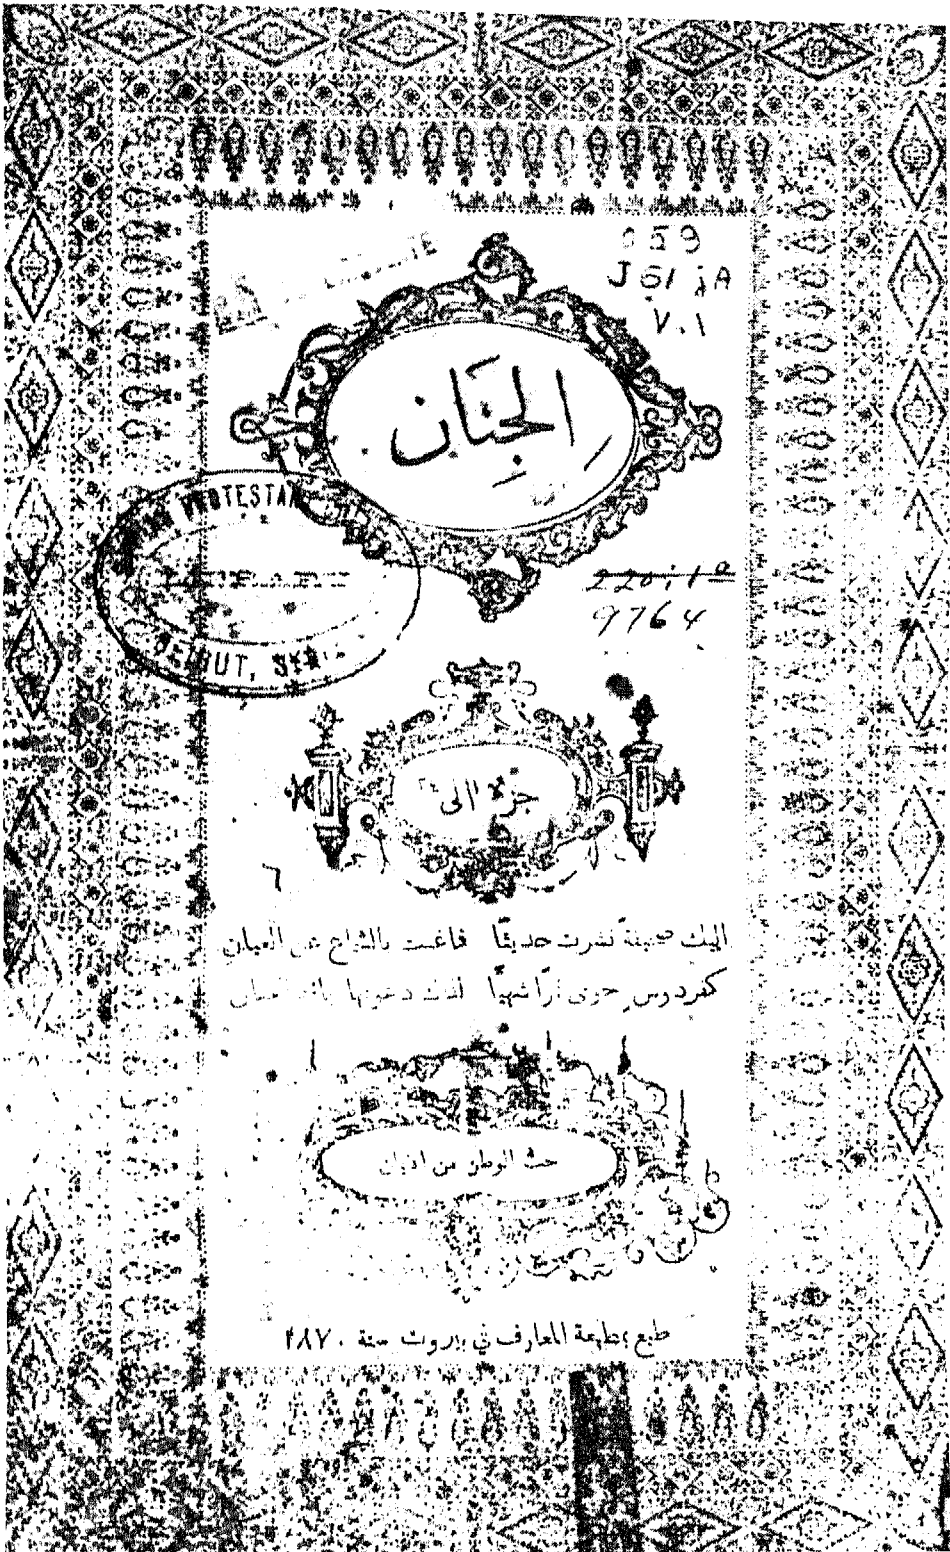 059
J 61 jA
v.1
الجنان
PROTESTANT
BEIRUT, SYRIA
220.1a
9764
جزء الى
اليك صحيفة نشرت حديثًا فاغنت بالسماع عن العيان
كفردوس حوى شهيًا لذاك دعوتها
حب الوطن من الايمان
طبع بمطبعة المعارف في بيروت سنة ١٨٧٠